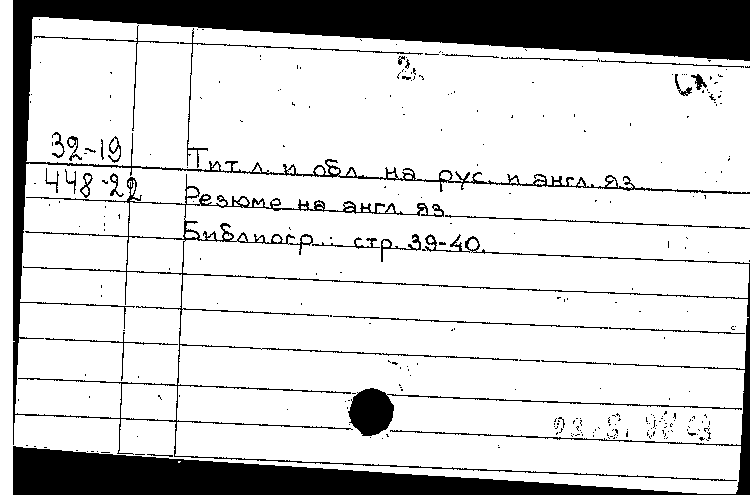 2.
32-19
448-22
Тит. л. и обл. на рус. и англ. яз.
Резюме на англ. яз.
Библиогр.: стр. 39-40.